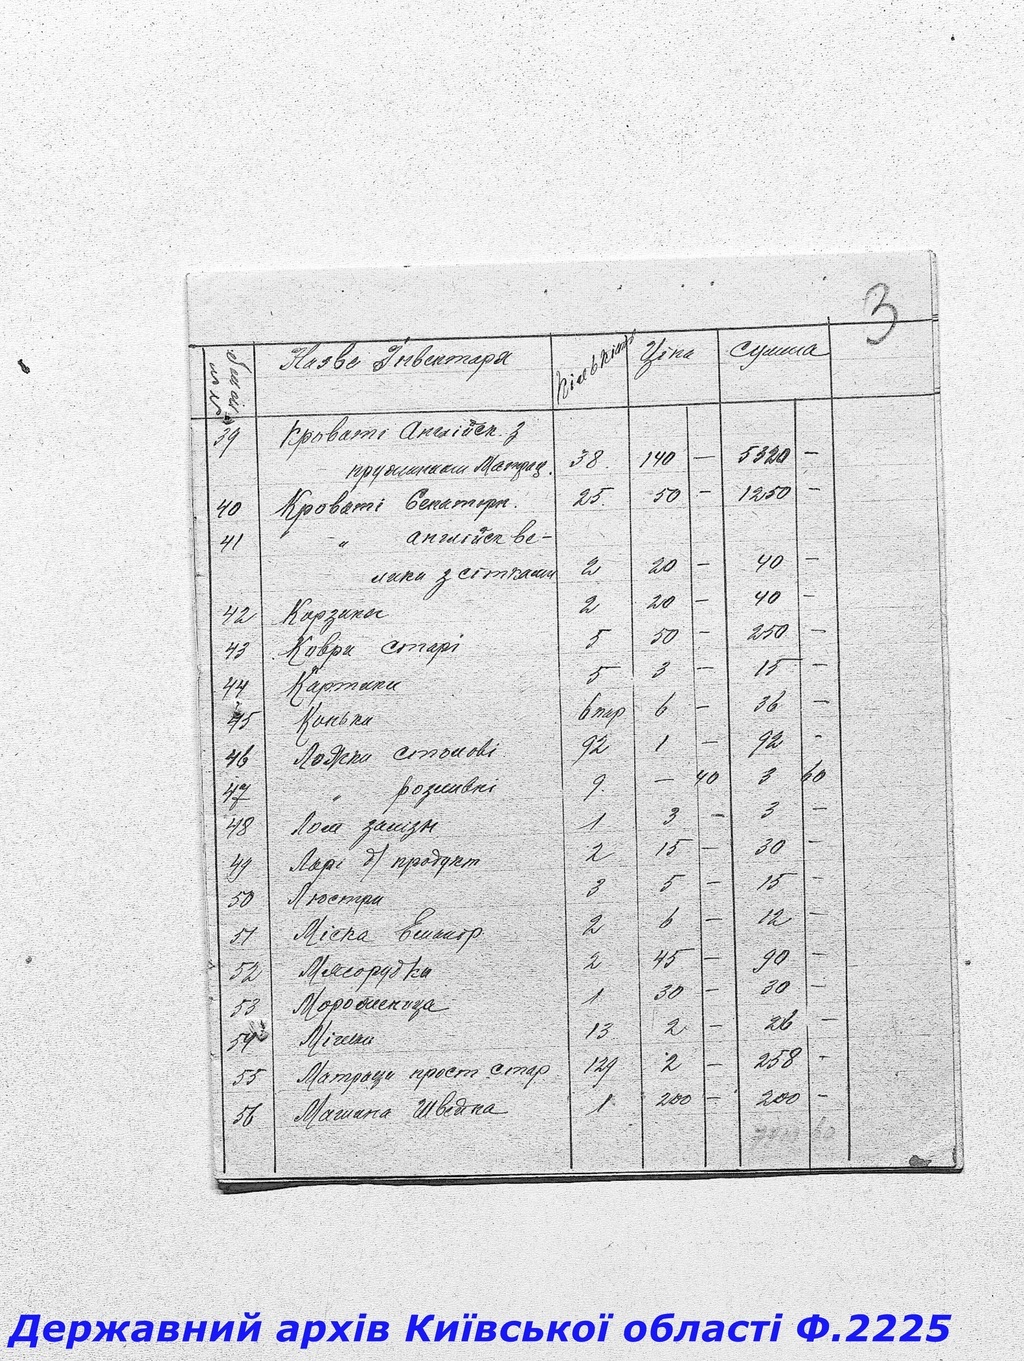 3
Назва Інвентаря Кількість Ціна Сумма
39 Кроваті Англійск. з
пружинами Матрац. 38. 140 — 5320 —
40 Кроваті Сенаторк. 25. 50 — 1250 —
41 " " англійск ве-
лики з сітками 2 20 — 40 —
42 Корзины 2 20 — 40 —
43 Коври старі 5 50 — 250 —
44 Картини 5 3 — 15 —
45 Коньки 6 пар 6 — 36 —
46 Ложки столові 92 1 — 92 -
47 " розливні 9. — 40 3 60
48 Лом залізн 1 3 — 3 —
49 Ларі д/ продукт 2 15 — 30 —
50 Люстри 3 5 — 15 —
51 Міска Емалір 2 6 — 12 —
52 Мясорубки 2 45 — 90 —
53 Мороженица 1 30 — 30 —
54 Мішки 13 2 — 26 —
55 Матраци прост стар 129 2 — 258 -
56 Машина Швейна 1 200 — 200 —
60
Державний архів Київської області Ф.2225